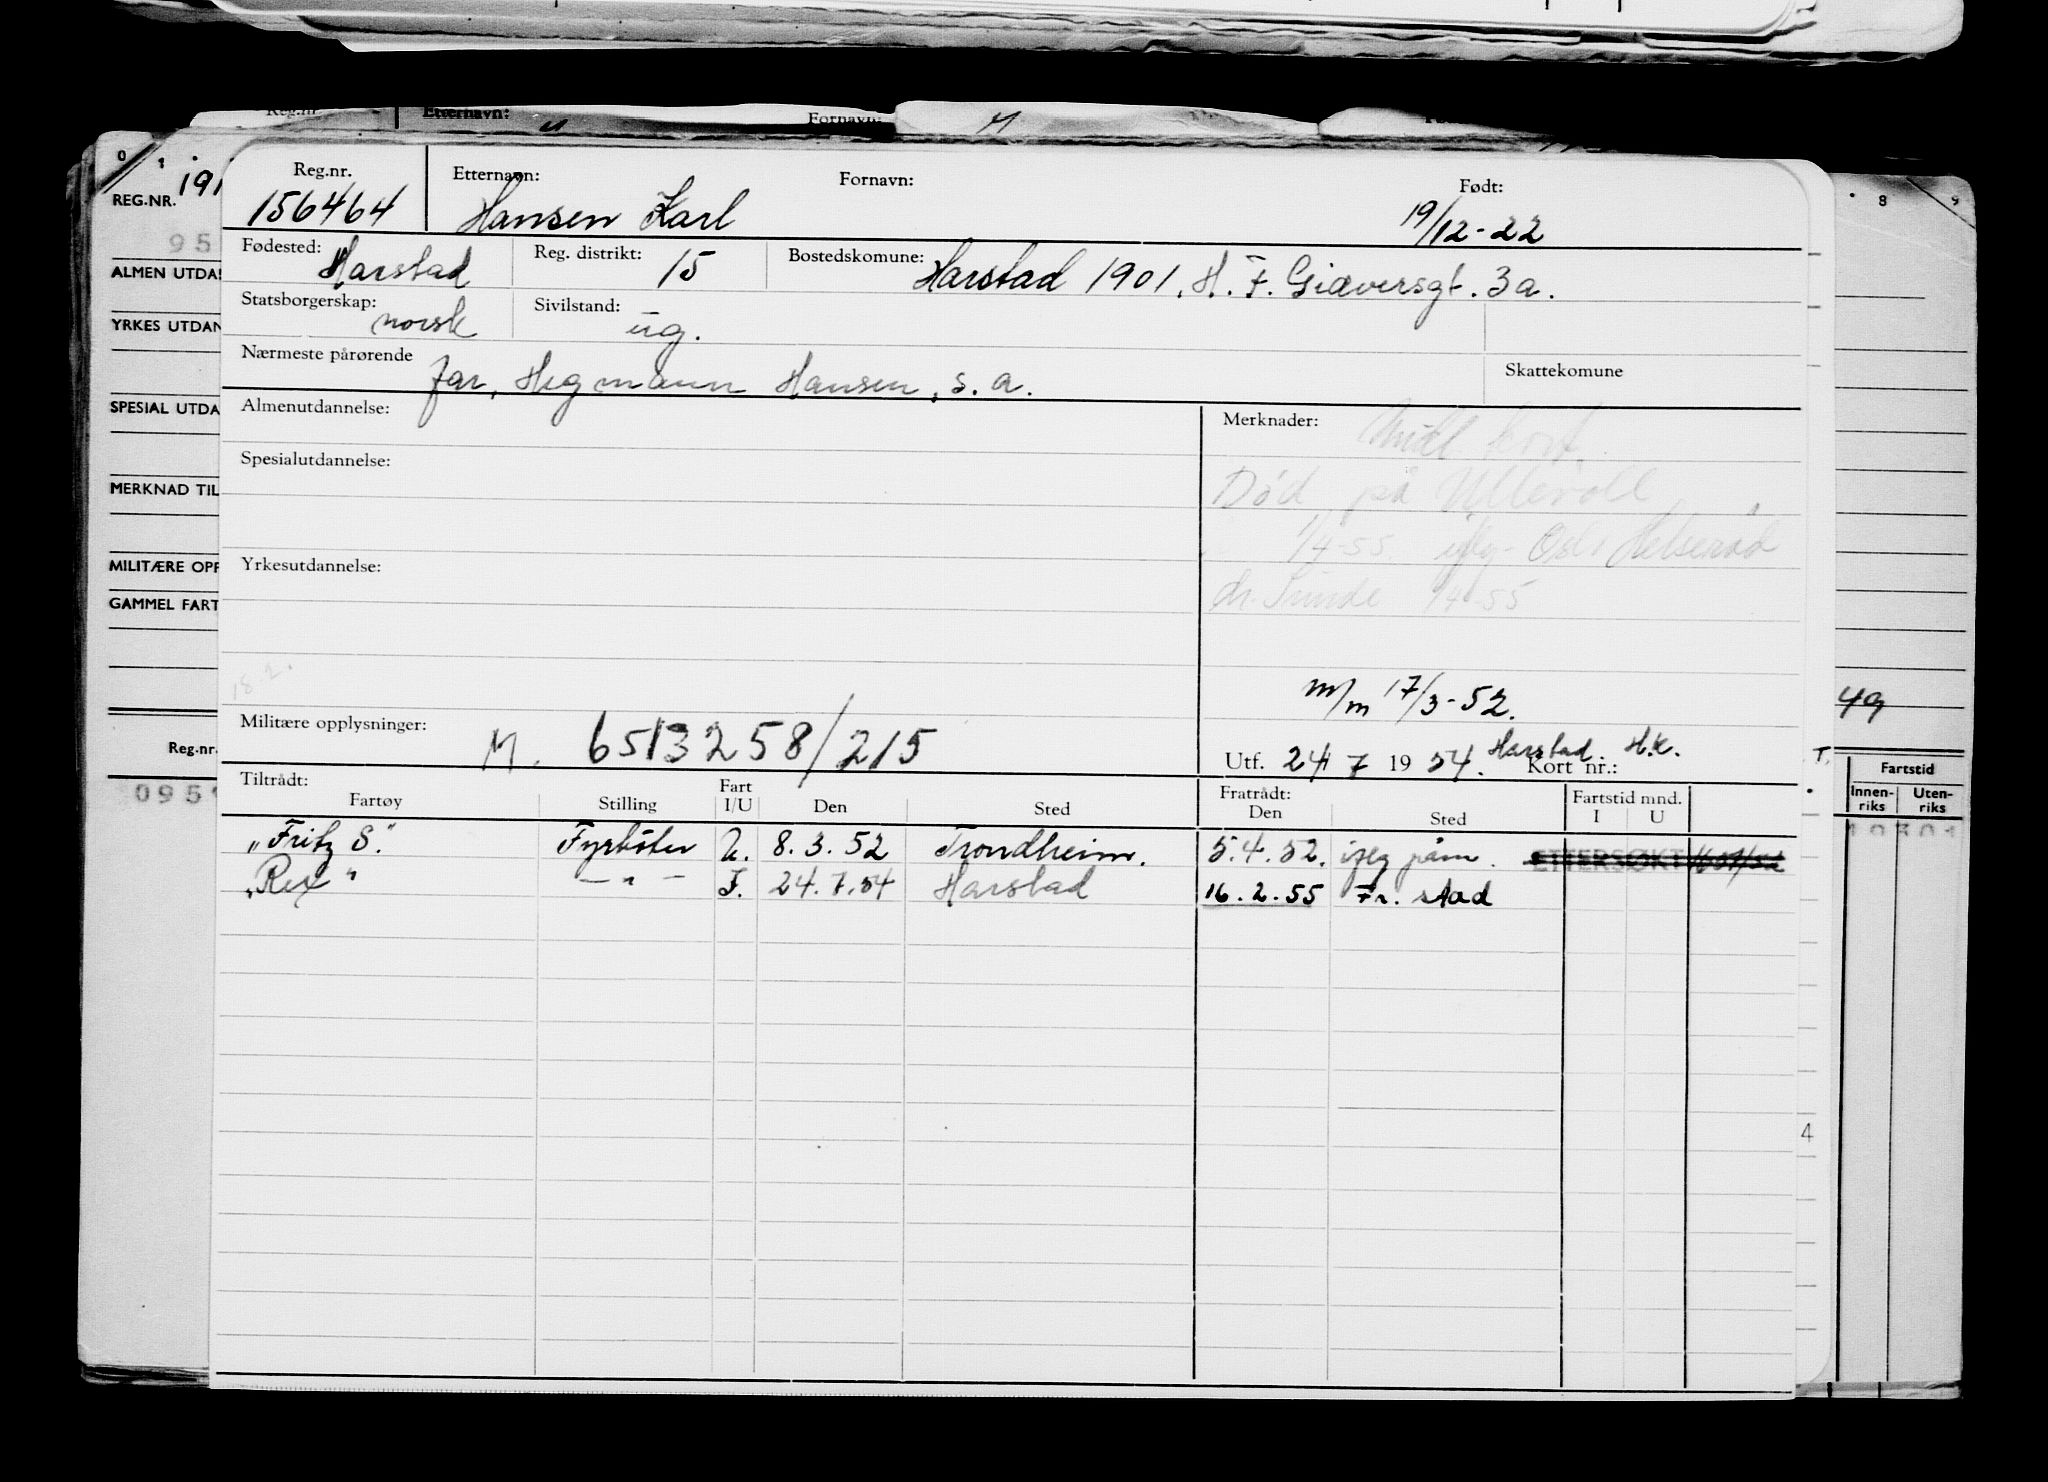 Reg.nr. Etternavn: Fornavn:
REG.NR. 191
95
ALMEN UTDA
YRKES UTDAN
SPESIAL UTDA
MERKNAD TIL
MILITÆRE OPP
GAMMEL FART
Reg.nr.
095
Reg.nr. Etternavn: Fornavn: Født:
156464 Hansen Karl 19/12-22
Fødested: Harstad Reg. distrikt: 15 Bostedskomune: Harstad 1901. H. F. Giæversgt. 3a.
Statsborgerskap: norsk Sivilstand: ug.
Nærmeste pårørende far, Hansen, s. a. Skattekomune
Almenutdannelse: Merknader: kort.
Spesialutdannelse:
Død på Ullevoll
1/4-55. iflg. Helseråd
Yrkesutdannelse:
dr. Sunde 1/4-55
18.2.
m/m 17/3-52.
Militære opplysninger: M. 6513258/215
Utf. 24 7 1954. Harstad. H.K. Kort nr.:
Tiltrådt: Fratrådt: Fartstid mnd.
Fartøy Stilling Fart I/U Den Sted Den Sted I U
„Fritz S." Fyrbøter U. 8.3.52 Trondheim. 5.4.52. iflg påm. ETTERSØKT
„Rex" — " — I. 24.7.54 Harstad 16.2.55 Fr. stad
8 9
49
T.
Fartstid
Innen-riks Uten-riks
4